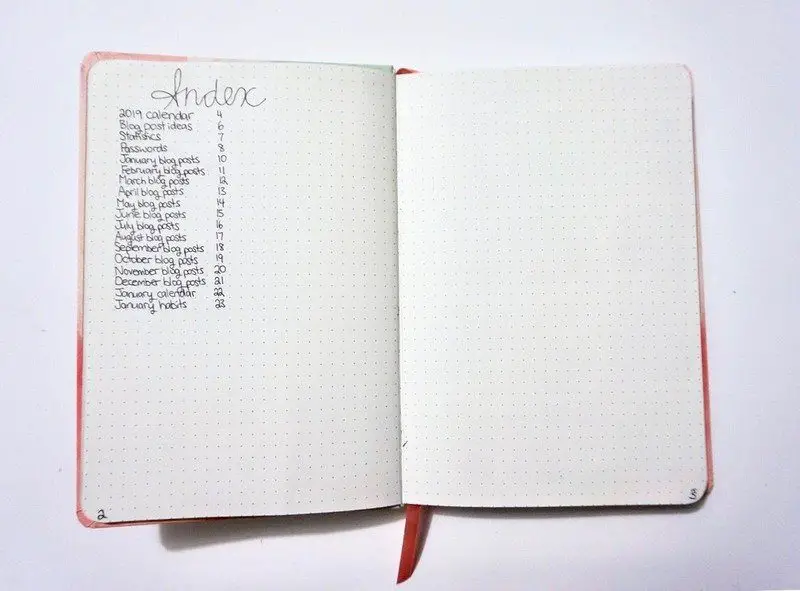 Index
2019 calendar 4
Blog post ideas 6
Statistics 7
Passwords 8
January blog posts 10
February blog posts 11
March blog posts 12
April blog posts 13
May blog posts 14
June blog posts 15
July blog posts 16
August blog posts 17
September blog posts 18
October blog posts 19
November blog posts 20
December blog posts 21
January calendar 22
January habits 23
2
3